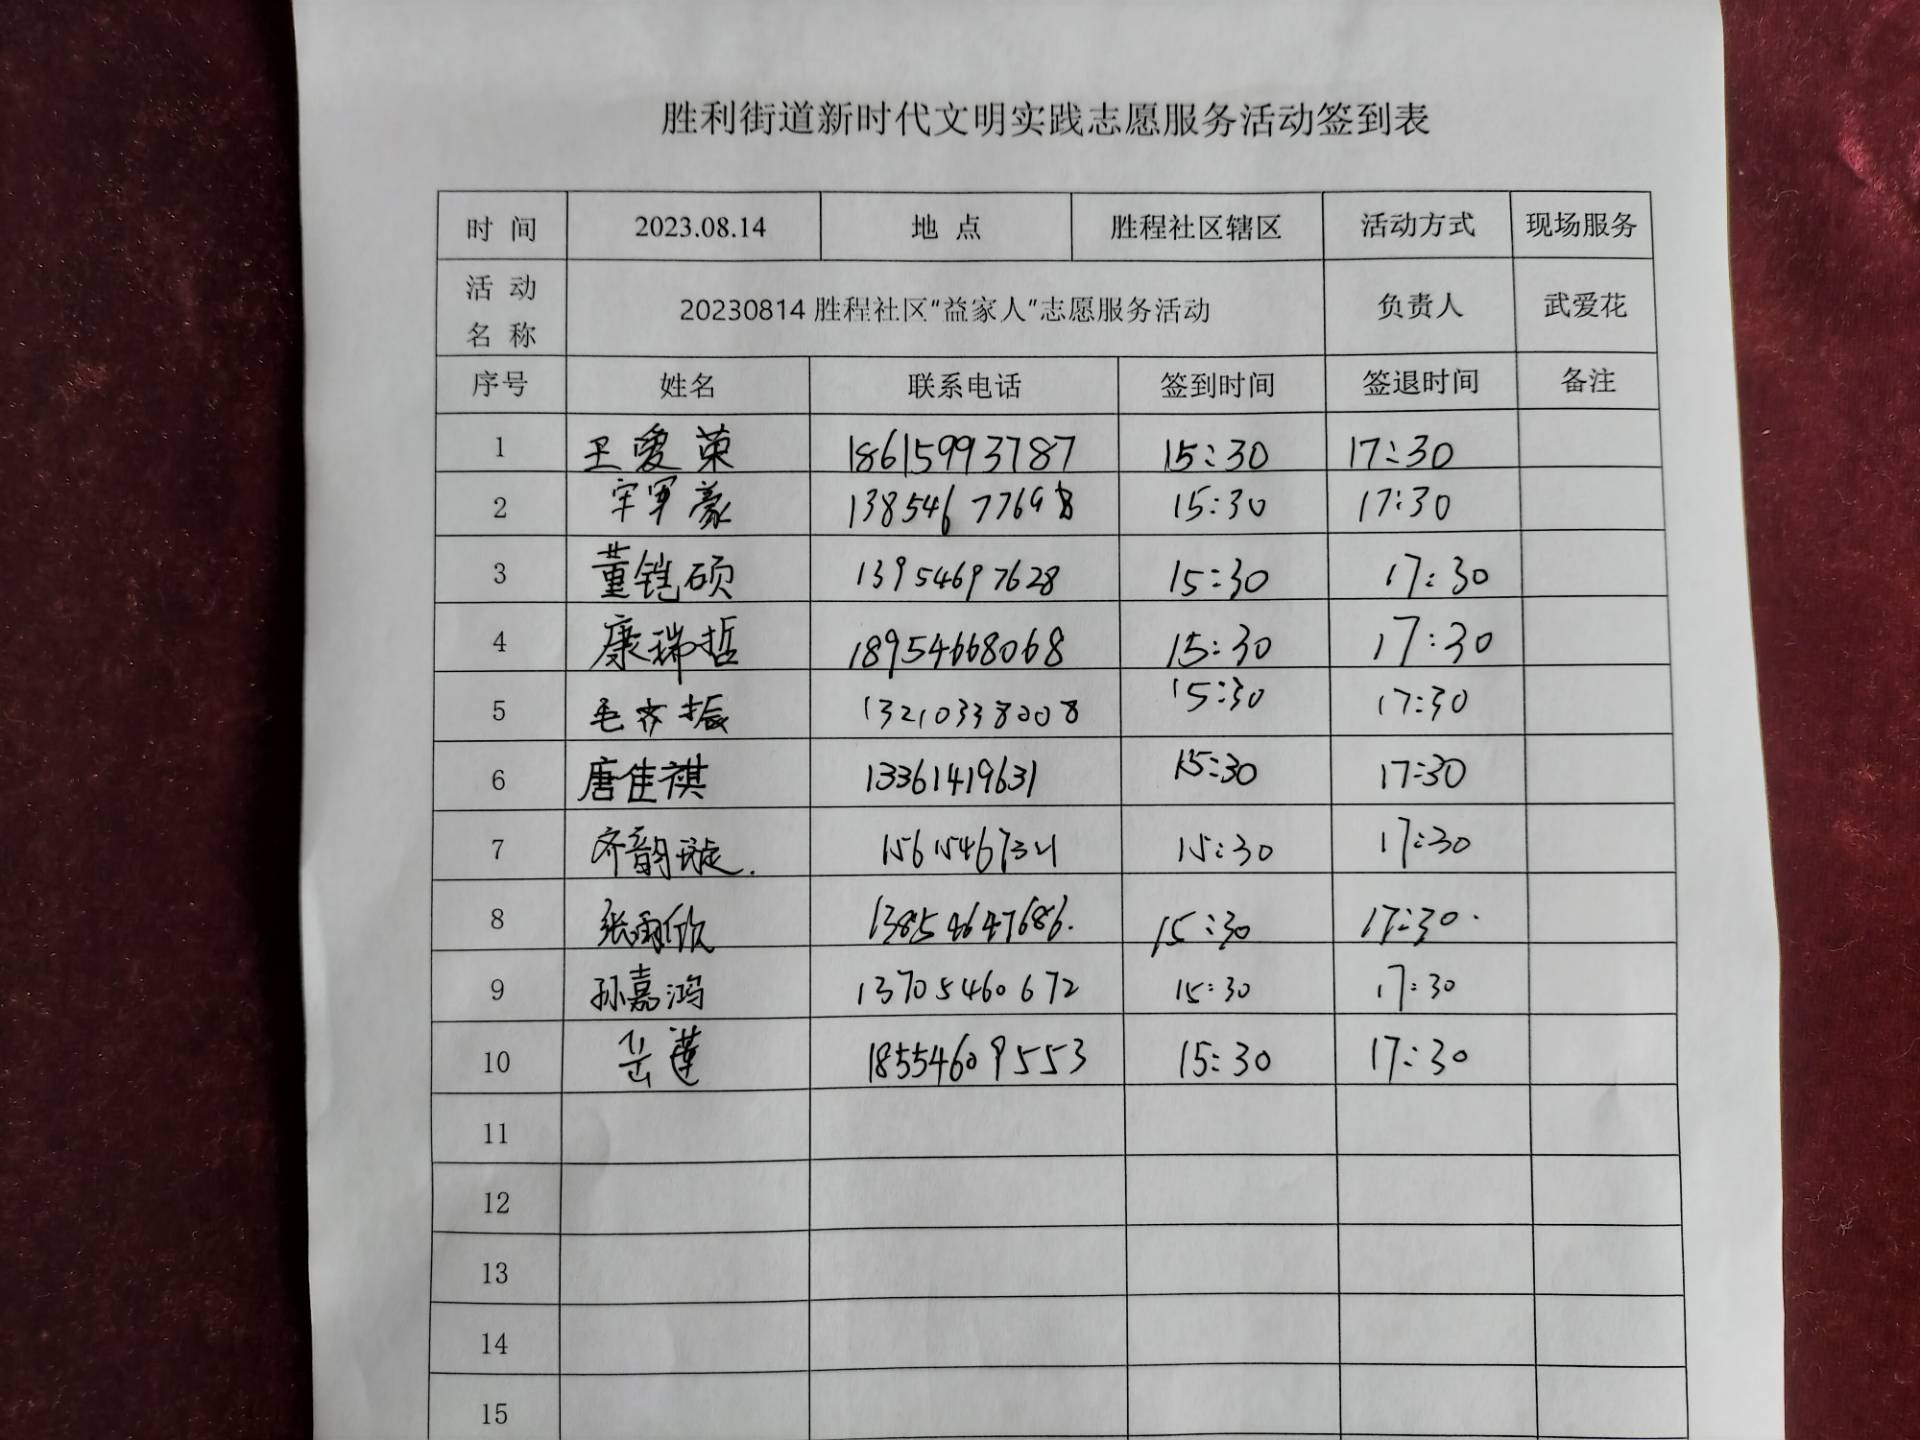 胜利街道新时代文明实践志愿服务活动签到表
时 间 2023.08.14 地 点 胜程社区辖区 活动方式 现场服务
活 动
名 称 20230814 胜程社区“益家人”志愿服务活动 负责人 武爱花
序号 姓名 联系电话 签到时间 签退时间 备注
1 王爱荣 18615993787 15:30 17:30
2 军豪 15:30 17:30
3 董铠硕 13954697628 15:30 17:30
4 康瑞哲 18954668068 15:30 17:30
5 毛齐振 13210338008 15:30 17:30
6 唐佳祺 13361419631 15:30 17:30
7 齐韵 15:30 17:30
8 张雨欣 13854647686. 15:30 17:30.
9 孙嘉鸿 13705460672 15:30 17:30
10 岳莲 18554609553 15:30 17:30
11
12
13
14
15